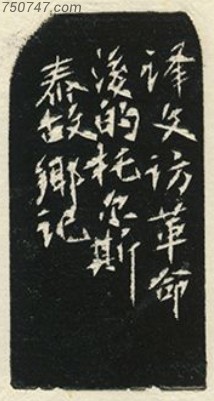 750747.com
译文访革命
後的托尔斯
泰故鄉记